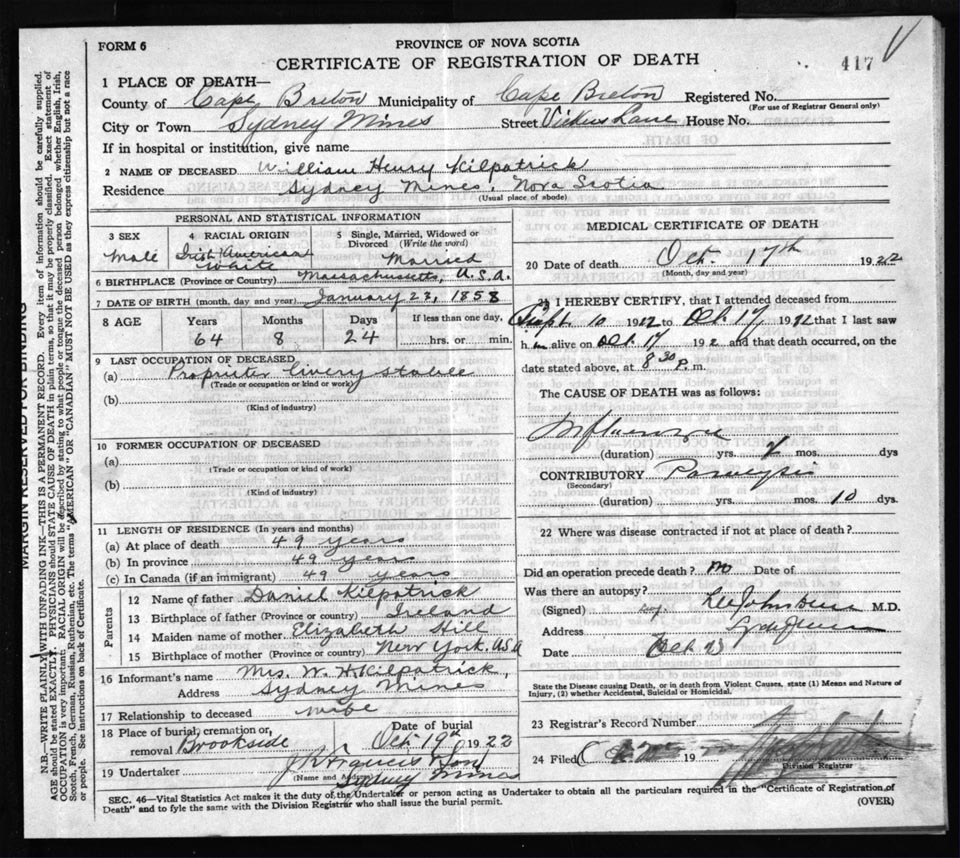 FORM 6
PROVINCE OF NOVA SCOTIA
CERTIFICATE OF REGISTRATION OF DEATH
417
1 PLACE OF DEATH—
County of Cape Breton Municipality of Cape Breton Registered No.
(For use of Registrar General only)
City or Town Sydney Mines Street Vickers Lane House No.
If in hospital or institution, give name
2 NAME OF DECEASED William Henry Kilpatrick
Residence Sydney Mines, Nova Scotia
(Usual place of abode)
PERSONAL AND STATISTICAL INFORMATION
3 SEX
Male
4 RACIAL ORIGIN
Irish (American)
White
5 Single, Married, Widowed or Divorced (Write the word)
Married
6 BIRTHPLACE (Province or Country) Massachusetts, U.S.A.
7 DATE OF BIRTH (month, day and year) January 23, 1858
8 AGE Years Months Days If less than one day,
64 8 24 hrs. or min.
9 LAST OCCUPATION OF DECEASED
(a) Propriter livery stable
(Trade or occupation or kind of work)
(b)
(Kind of industry)
10 FORMER OCCUPATION OF DECEASED
(a)
(Trade or occupation or kind of work)
(b)
(Kind of industry)
11 LENGTH OF RESIDENCE (In years and months)
(a) At place of death 49 years
(b) In province 49 years
(c) In Canada (if an immigrant) 49 years
Parents
12 Name of father Daniel Kilpatrick
13 Birthplace of father (Province or country) Ireland
14 Maiden name of mother Elizabeth Hill
15 Birthplace of mother (Province or country) New York. USA
16 Informant's name Mrs. W. H. Kilpatrick,
Address Sydney Mines
17 Relationship to deceased wife
18 Place of burial, cremation, or removal Brookside
Date of burial
Oct. 19th 1922
19 Undertaker & Son
(Name and Address) Sydney Mines
MEDICAL CERTIFICATE OF DEATH
20 DATE OF DEATH Oct. 17th 1922
(Month, day and year)
21 I HEREBY CERTIFY, that I attended deceased from
Sept. 10 1922 to Oct. 17 1922 that I last saw
h m alive on Oct. 17 192 and that death occurred, on the
date stated above, at 8 30 P. m.
The CAUSE OF DEATH was as follows:
(duration) yrs. mos. dys
CONTRIBUTORY
(Secondary)
(duration) yrs. mos. 10 dys.
22 Where was disease contracted if not at place of death?
Did an operation precede death? no Date of
Was there an autopsy?
(Signed) M.D.
Address
Date Oct.
State the Disease causing Death, or in death from Violent Causes, state (1) Means and Nature of Injury, (2) whether Accidental, Suicidal or Homicidal.
23 Registrar's Record Number
24 Filed 19
Division Registrar
SEC. 46—Vital Statistics Act makes it the duty of the Undertaker or person acting as Undertaker to obtain all the particulars required in the "Certificate of Registration of
Death" and to fyle the same with the Division Registrar who shall issue the burial permit.
(OVER)
MARGIN RESERVED FOR BINDING
N.B.—WRITE PLAINLY WITH UNFADING INK—THIS IS A PERMANENT RECORD. Every item of information should be carefully supplied.
AGE should be stated EXACTLY. PHYSICIANS should STATE CAUSE OF DEATH in plain terms, so that it may be properly classified. Exact statement of
OCCUPATION is very important. RACIAL ORIGIN will be described by stating to what people or tongue the deceased person belonged, whether English, Irish,
Scotch, French, German, Russian, Ruthenian, etc. The terms "AMERICAN" OR "CANADIAN" MUST NOT BE USED as they express citizenship but not a race
or people. See instructions on back of Certificate.